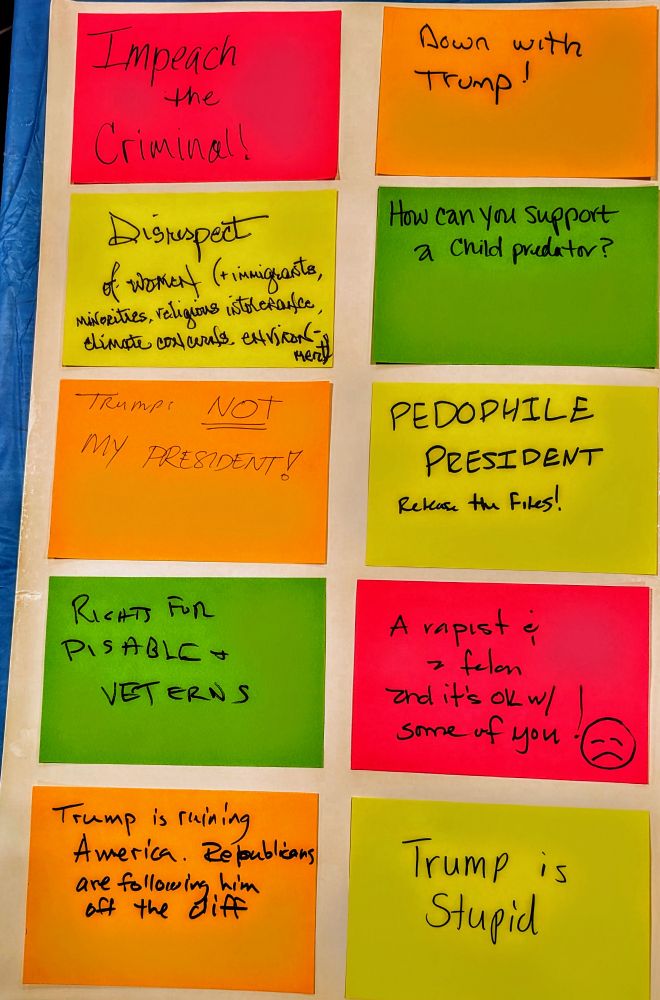 Impeach
the
Criminal!
Down with
Trump!
Disrespect
of women (+ immigrants,
minorities, religious intolerance,
climate concerns environ-
ment)
How can you support
a Child predator?
Trump: NOT
MY PRESIDENT!
PEDOPHILE
PRESIDENT
Release the Files!
RIGHTS FOR
DISABLE +
VETERNS
A rapist &
a felon
and it's OK w/
some of you!
Trump is ruining
America. Republicans
are following him
off the cliff
Trump is
Stupid